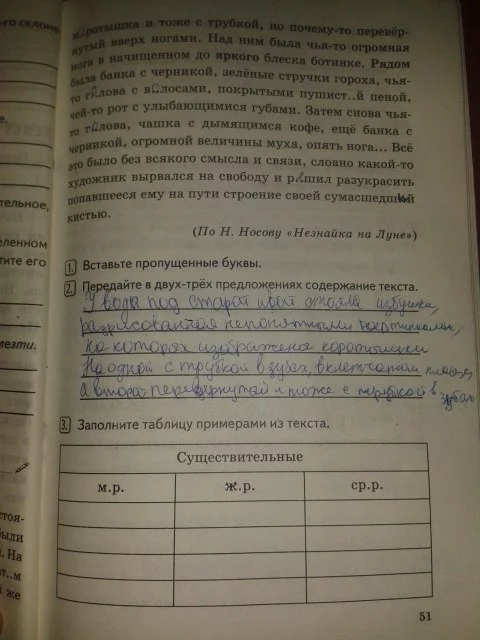 -го склоне-
коротышка и тоже с трубкой, но почему-то перевёр-
нутый вверх ногами. Над ним была чья-то огромная
нога в начищенном до яркого блеска ботинке. Рядом
была банка с черникой, зелёные стручки гороха, чья-
то голова с волосами, покрытыми пушист..й пеной,
чей-то рот с улыбающимися губами. Затем снова чья-
то голова, чашка с дымящимся кофе, ещё банка с
черникой, огромной величины муха, опять нога... Всё
это было без всякого смысла и связи, словно какой-то
художник вырвался на свободу и решил разукрасить
попавшееся ему на пути строение своей сумасшедшей
кистью.
(По Н. Носову «Незнайка на Луне»)
1. Вставьте пропущенные буквы.
2. Передайте в двух-трёх предложениях содержание текста.
У вода под старой ивой стояла избушка,
разрисованная непонятными картинками,
На которых изображена коротышки
На одной с трубкой в зубах, в клетчатом плаще,
А второй перевёрнутый и тоже с трубкой в зубах
3. Заполните таблицу примерами из текста.
Существительные
м.р. ж.р. ср.р.
51
тельное,
еленном
тите его
мезти.
стоя-
были
. На
ет..м
же